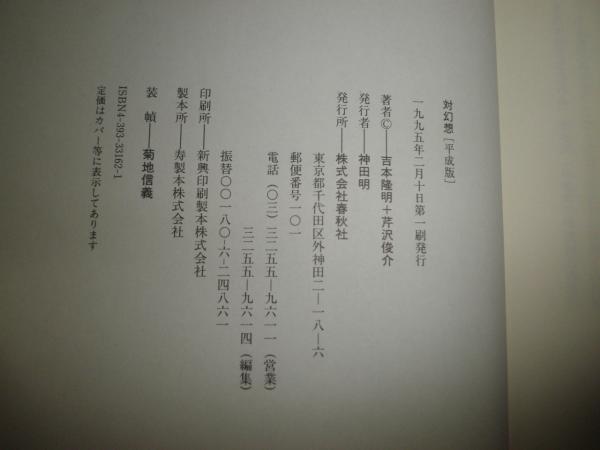 対幻想［平成版］
一九九五年二月十日第一刷発行
著者©――吉本隆明＋芹沢俊介
発行者――神田明
発行所――株式会社春秋社
東京都千代田区外神田二―一八―六
郵便番号一〇一
電話（〇三）三二五五―九六一一（営業）
三二五五―九六一四（編集）
振替〇〇一八〇―六―二四八六一
印刷所――新興印刷製本株式会社
製本所――寿製本株式会社
装　幀――菊地信義
ISBN4-393-33162-1
定価はカバー等に表示してあります